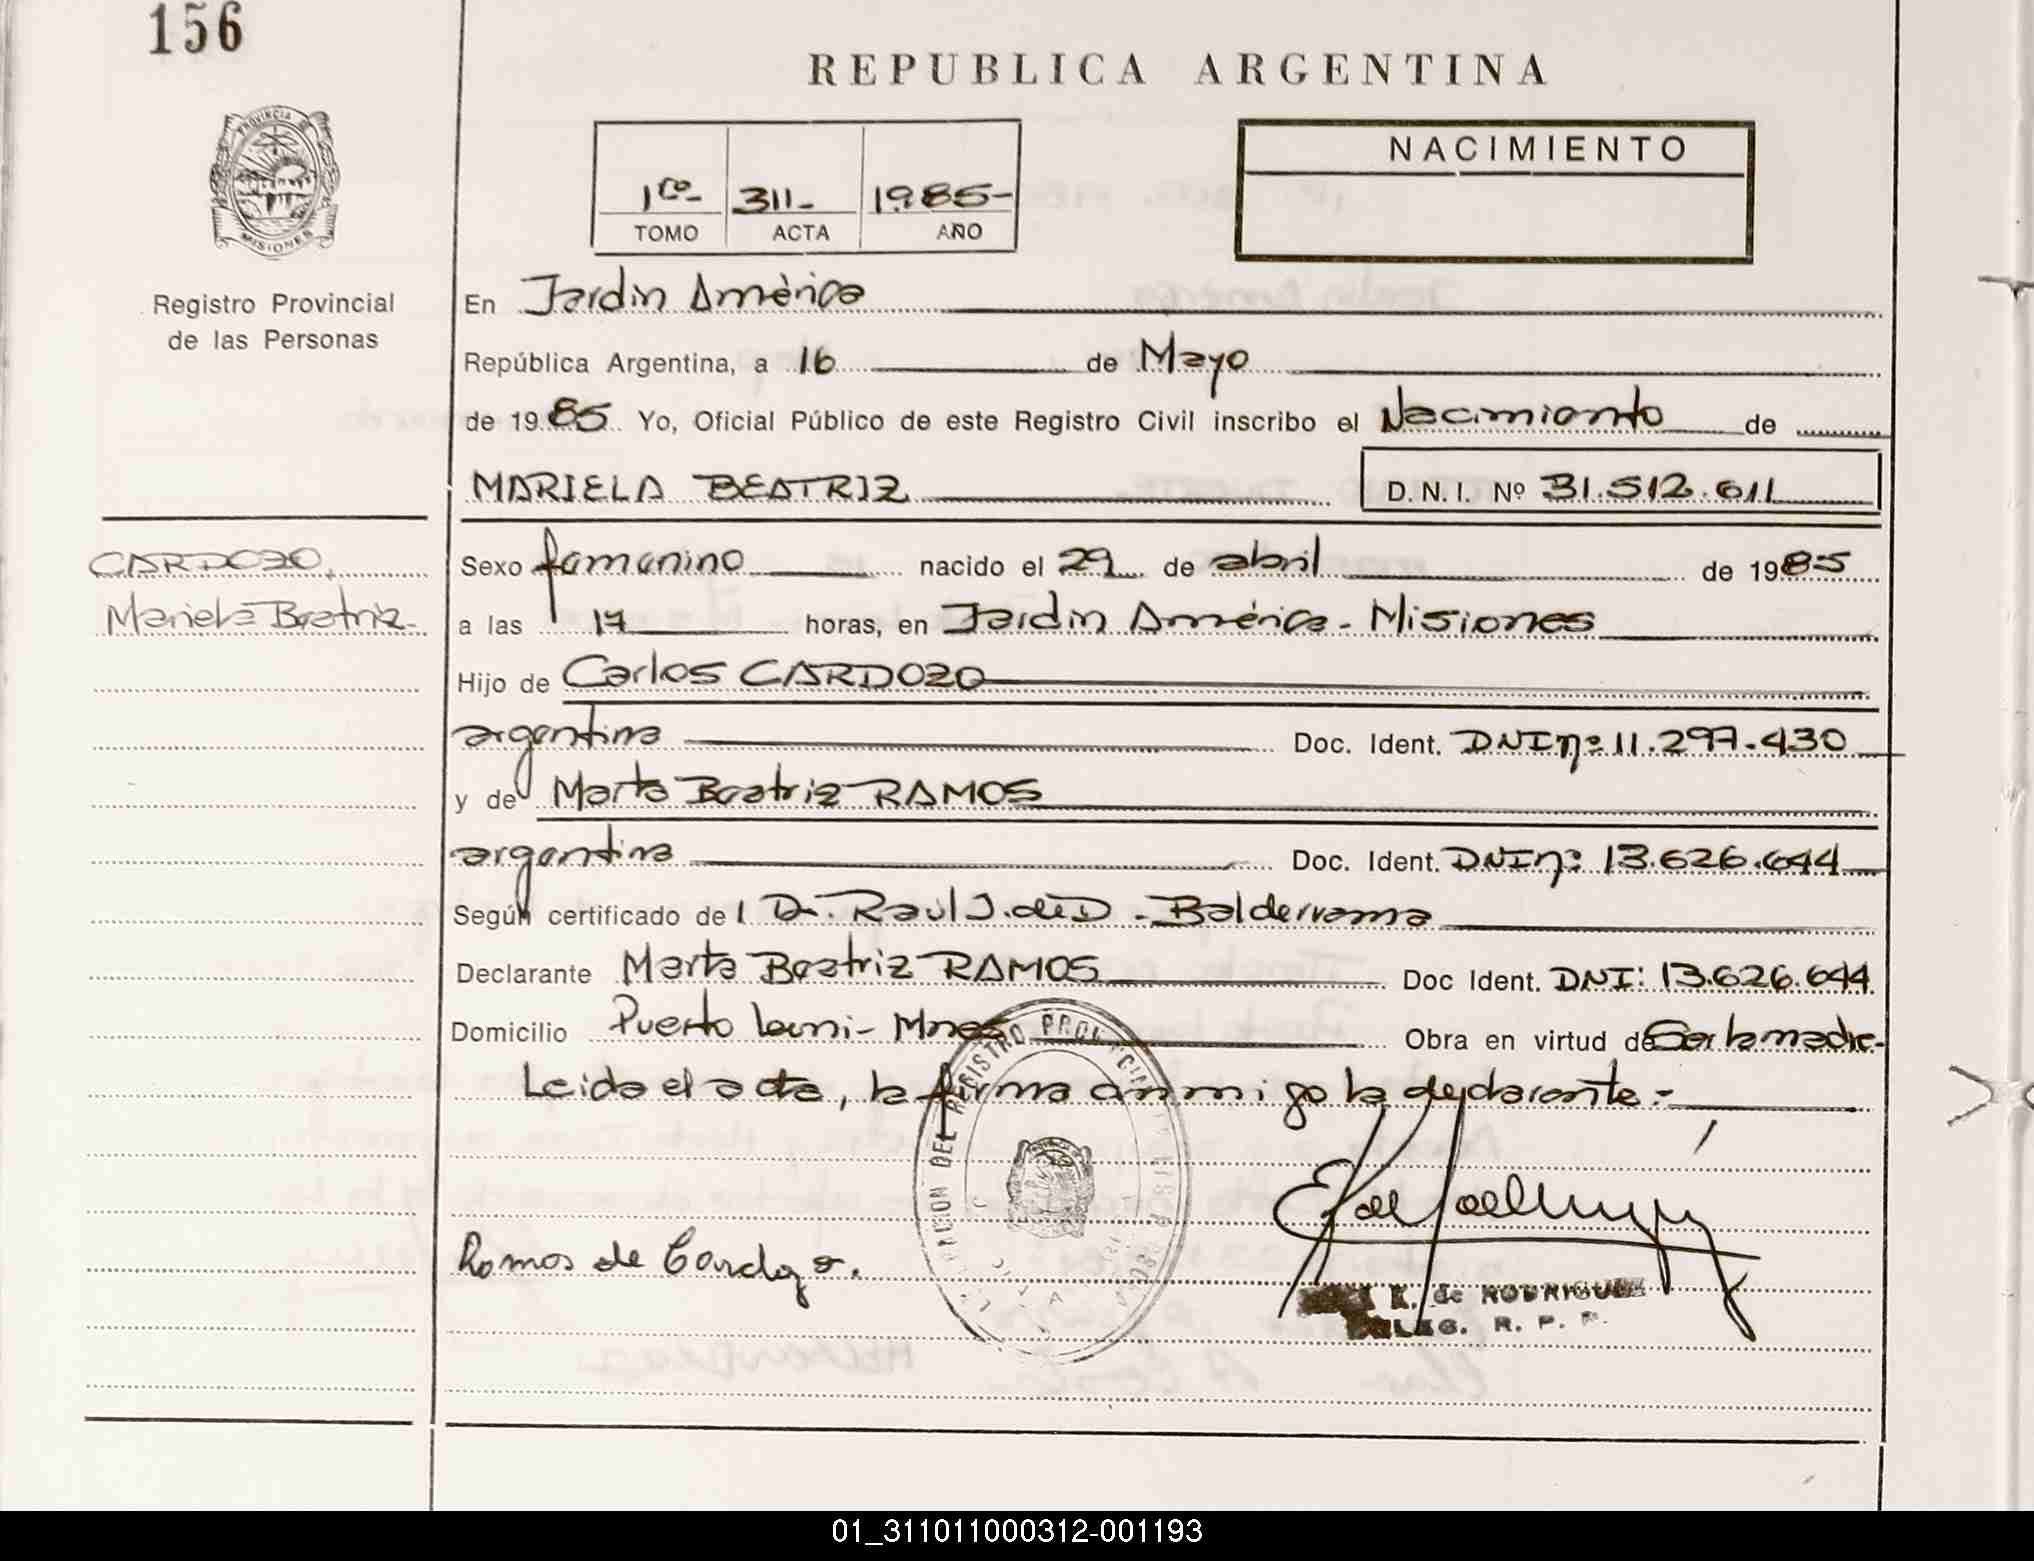 156
REPUBLICA ARGENTINA
PROVINCIA DE
MISIONES
Registro Provincial
de las Personas
1ro- 311- 1985-
TOMO ACTA AÑO
NACIMIENTO
En Jardín América
República Argentina, a 16 de Mayo
de 1985 Yo, Oficial Público de este Registro Civil inscribo el Nacimiento de
MARIELA BEATRIZ D.N.I. Nº 31.512.611
CARDOZO,
Mariela Beatriz-
Sexo femenino nacido el 29 de abril de 1985
a las 17 horas, en Jardín América - Misiones
Hijo de Carlos CARDOZO
argentina Doc. Ident. DNI nº 11.297.430
y de Marta Beatriz RAMOS
argentina Doc. Ident. DNI n: 13.626.644
Según certificado del Dr. Raul J. de D. Balderrama
Declarante Marta Beatriz RAMOS Doc Ident. DNI: 13.626.644
Domicilio Puerto Leoni - Mnes Obra en virtud de Ser la madre-
Leida el acta, la firma conmigo la declarante.-
DEL REGISTRO PROVINCIAL
Ramos de Cardozo.
K. de RODRIGUEZ
DELEG. R. P. P.
01_311011000312-001193